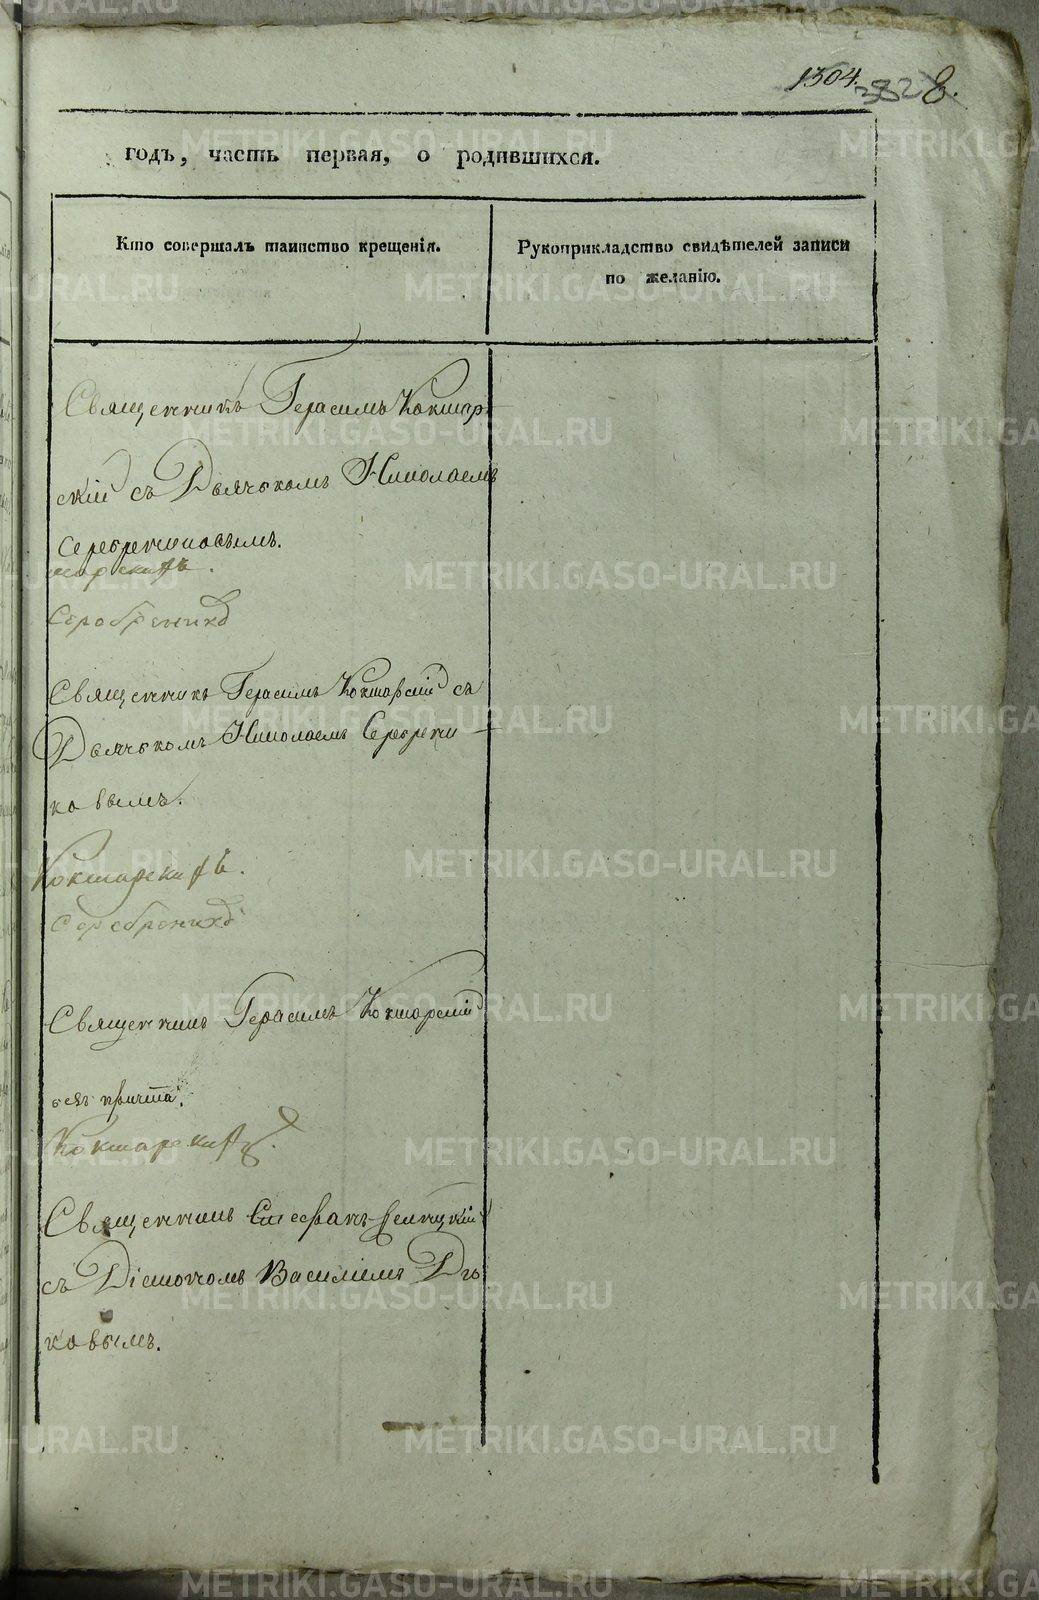 1504. 8.
годъ, часть первая, о родившихся.
Кто совершалъ таинство крещенія.
Рукоприкладство свидѣтелей записи
по желанію.
Священникъ Герасимъ Кокшар
скій съ Дьячькомъ Николаемъ
Серебрениковымъ.
Серебрениковъ
Священникъ Герасимъ Кокшарскій съ
Дьячькомъ Николаемъ Серебрени
ковымъ.
Кокшарский.
Серебрениковъ
Священникъ Герасимъ Кокшарскій
безъ причта.
Кокшарский.
Священникъ Стефанъ
съ Діакономъ Василіемъ
ковымъ.
METRIKI.GASO-URAL.RU